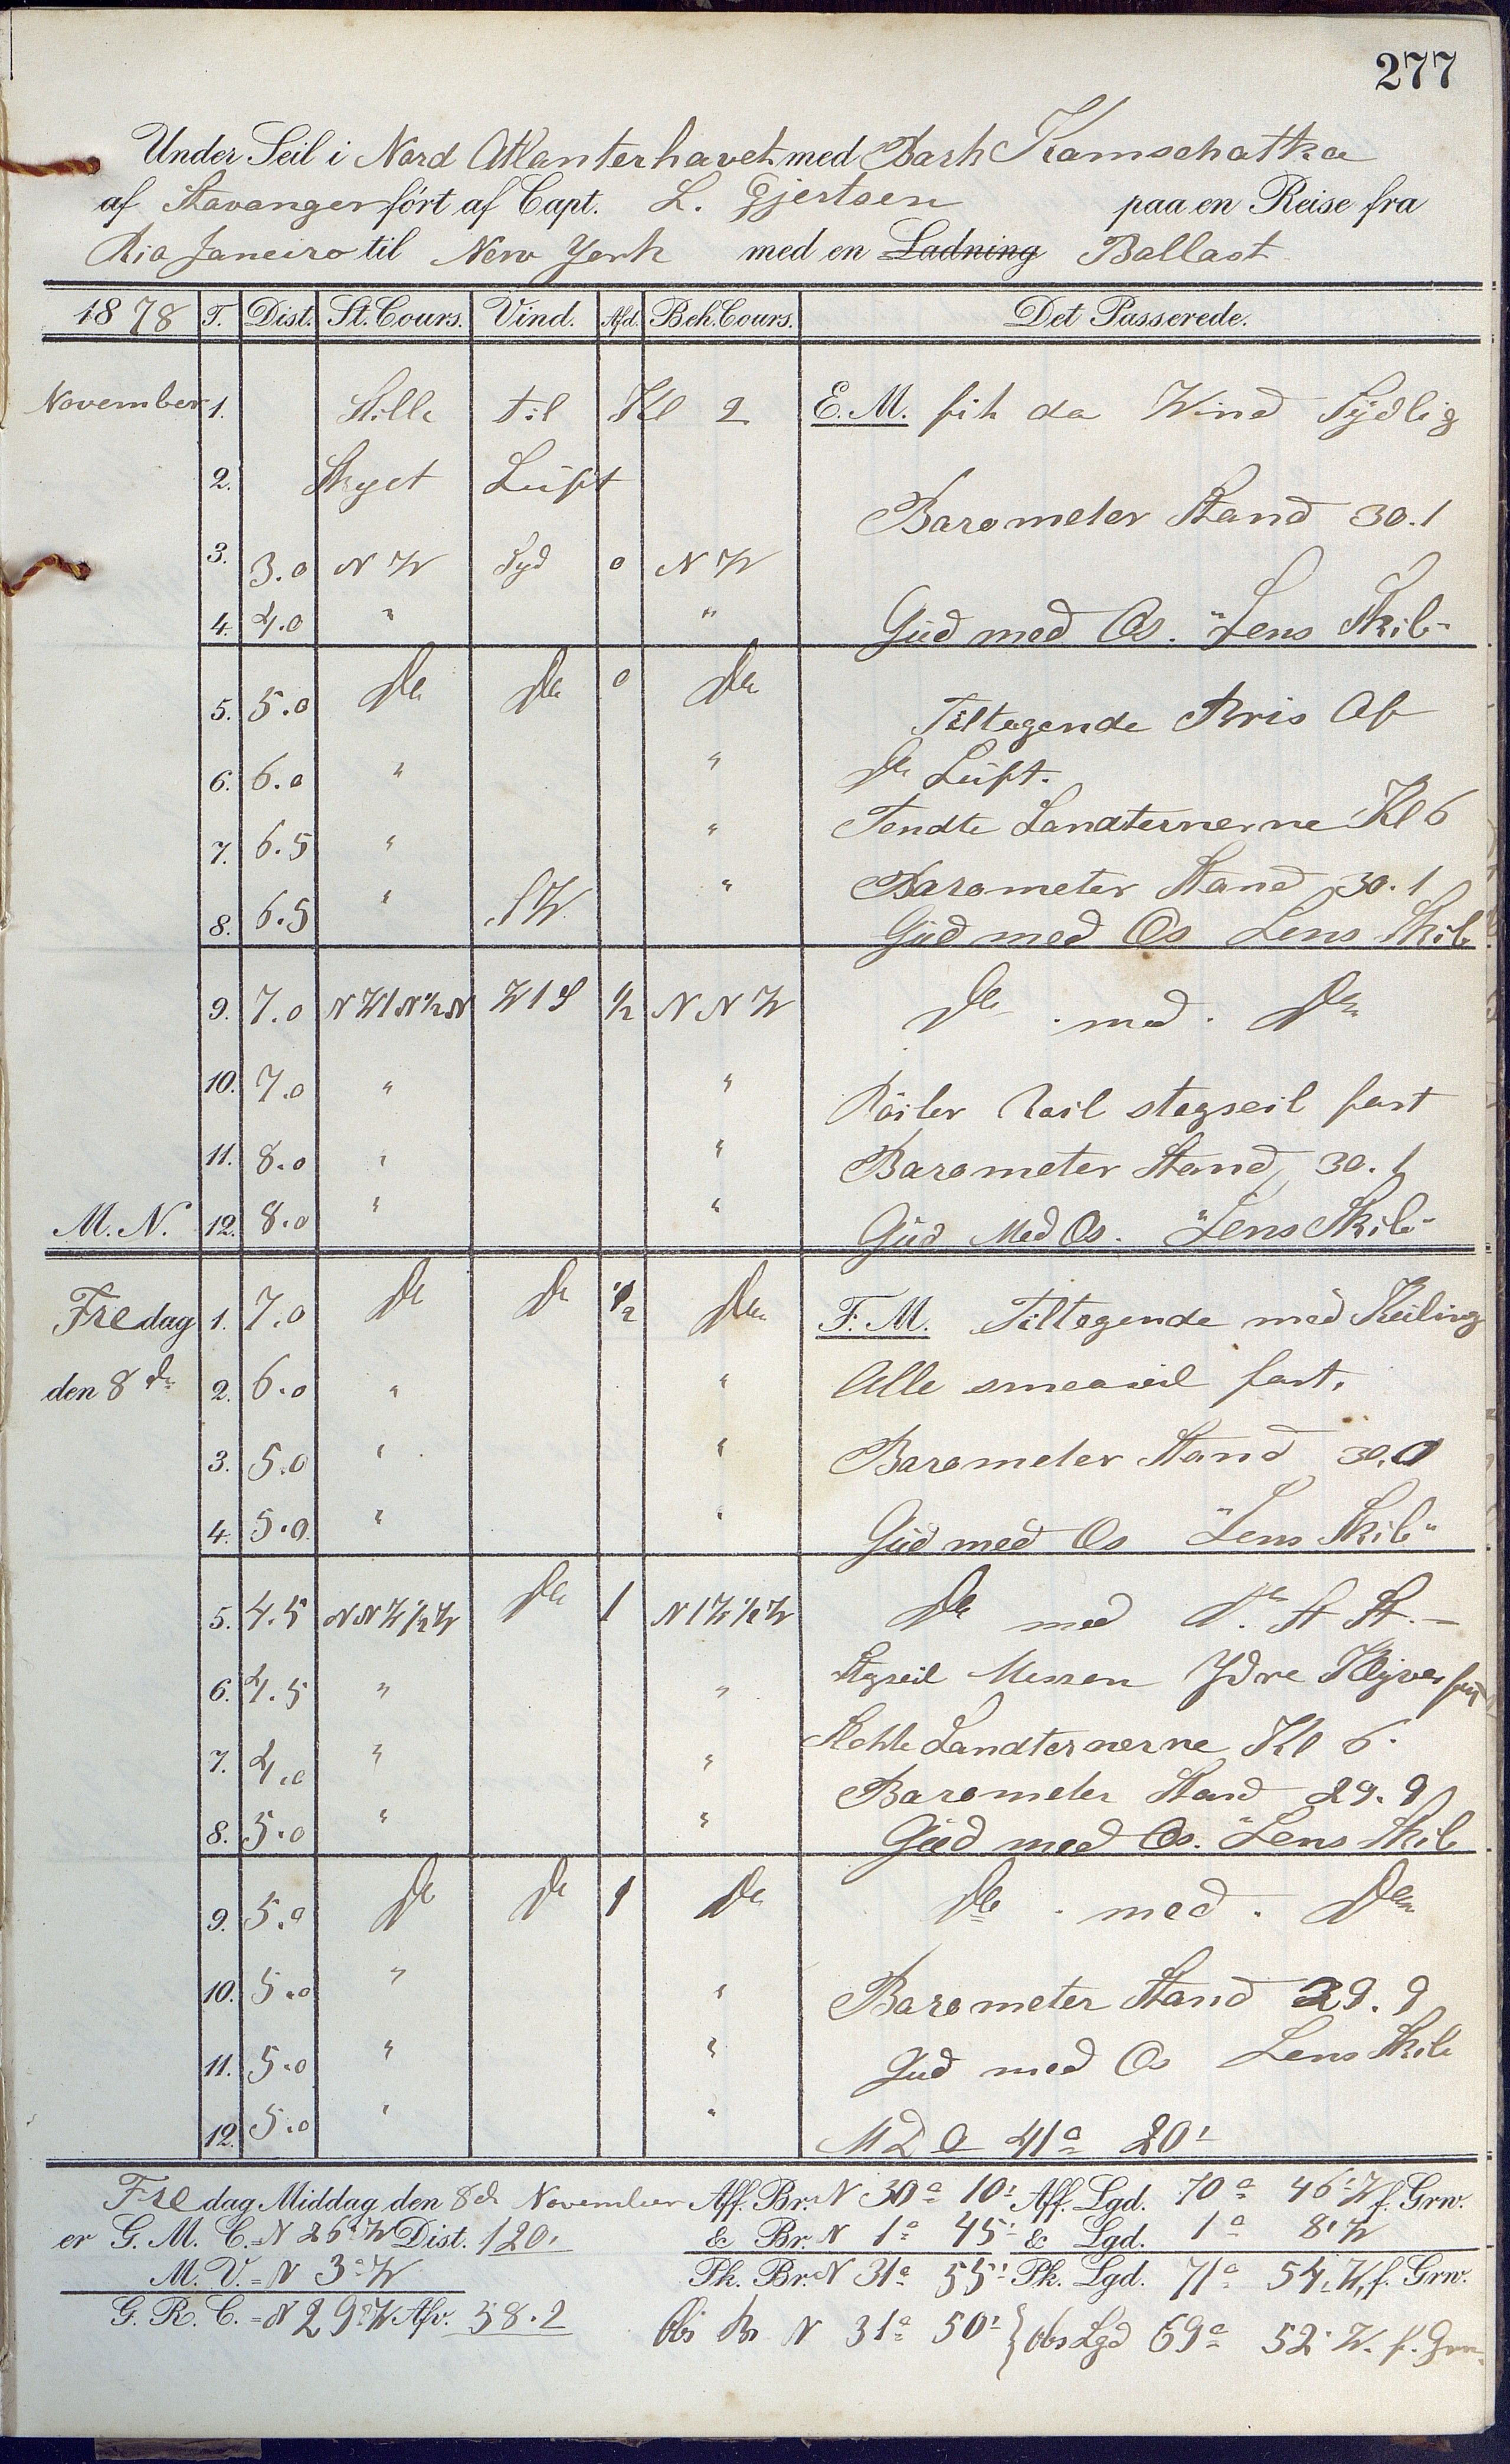 277
Under Seil i Nord Atlanterhavet med Bark Kamschatka
af Stavanger ført af Capt. L. Gjertsen paa en Reise fra
Rio Janeiro til New York med en Ladning Ballast
1878 T. Dist. St. Cours. Vind. Afd. Beh. Cours. Det Passerede.
November 1. Stille til Kl 2 E.M. fik da Wind Sydlig
2. Skyet Luft
Barometer Stand 30.1
3. 3.0 N W Syd 0 N W
4. 4.0 " " Gud med Os. "Lens Skib"
5. 5.0 Do Do 0 Do Tiltagende Bris Af
6. 6.0 " " Do Luft.
7. 6.5 " " Tendte Landternerne Kl 6
Barometer Stand 30.1
8. 6.5 " S W " Gud med Os Lens Skib
9. 7.0 N W 1 N ½ N W 1 S ½ N N W Do . med . Do
10. 7.0 " " Röiler stagseil fast
11. 8.0 " " Barometer Stand 30.1
M. N. 12. 8.0 " " Gud Med Os. "Lens Skib"
Fredag 1. 7.0 Do Do ½ Do F. M. Tiltagende med Kuling
den 8de 2. 6.0 " " Alle smaaseil fast.
3. 5.0 " " Barometer Stand 30.0
4. 5.0 " " Gud med Os "Lens Skib"
5. 4.5 N N W ½ W Do 1 N 1 W ½ W Do med Do. St St.
6. 4.5 " " Stagseil Messan Ydre Klyver fast
7. 4.0 " " Landternerne Kl 6.
Barometer Stand 29.9
8. 5.0 " " Gud med Os. "Lens Skib
9. 5.0 Do Do 1 Do Do . med . Do
10. 5.0 " " Barometer Stand 29.9
11. 5.0 " " Gud med Os Lens Skib
12. 5.0 " " 41° 20'
Fredag Middag den 8de November Aff. Br. N 30° 10' Aff. Lgd. 70° 46' W f. Grw.
er G. M. C. N 26° W Dist. 120' & Br. N 1° 45' & Lgd. 1° 8' W
M. V. = N 3° W Pk. Br. N 31° 55' Pk. Lgd. 71° 54' W. f. Grw.
G. R. C. = N 29° W Afv. 58.2 Obs Br N 31° 50' } Obs Lgd 69° 52' W. f. Grw.